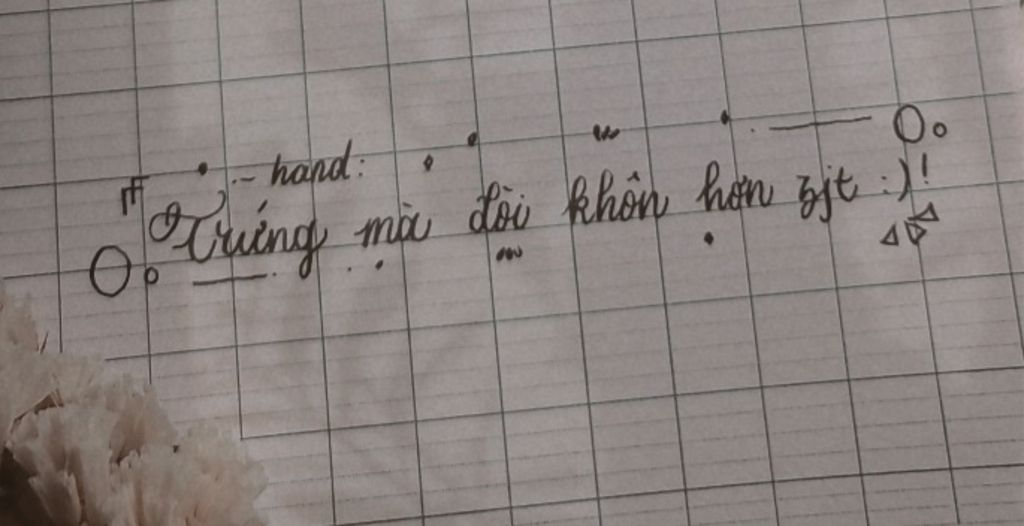 - hand:
Trứng mà đòi khôn hơn zịt :)!